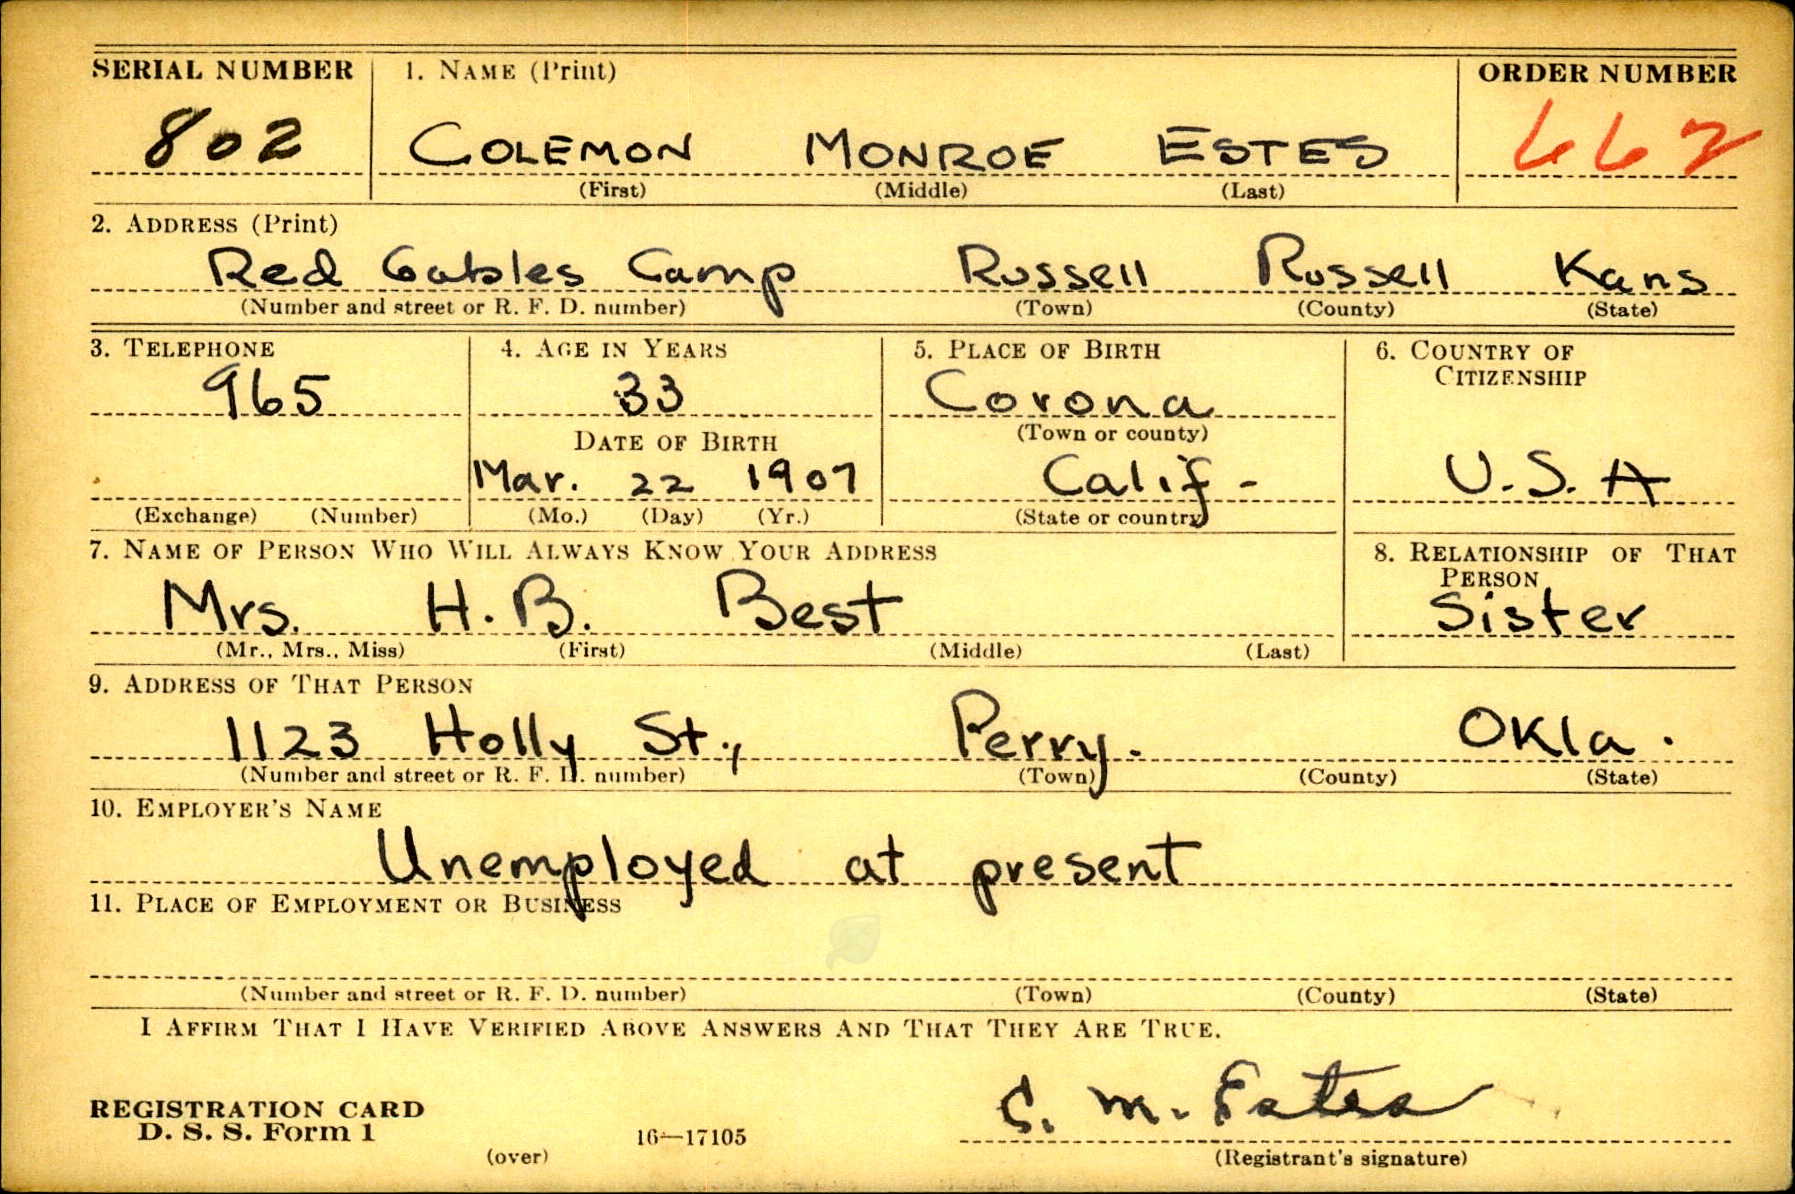 SERIAL NUMBER 1. NAME (Print) ORDER NUMBER
802 COLEMON MONROE ESTES 662
(First) (Middle) (Last)
2. ADDRESS (Print)
Red Gables Camp Russell Russell Kans
(Number and street or R. F. D. number) (Town) (County) (State)
3. TELEPHONE 4. AGE IN YEARS 5. PLACE OF BIRTH 6. COUNTRY OF
CITIZENSHIP
965 33 Corona
DATE OF BIRTH (Town or county)
Mar. 22 1907 Calif - U.S.A
(Exchange) (Number) (Mo.) (Day) (Yr.) (State or country)
7. NAME OF PERSON WHO WILL ALWAYS KNOW YOUR ADDRESS 8. RELATIONSHIP OF THAT
PERSON
Mrs. H. B. Best Sister
(Mr., Mrs., Miss) (First) (Middle) (Last)
9. ADDRESS OF THAT PERSON
1123 Holly St., Perry. Okla.
(Number and street or R. F. D. number) (Town) (County) (State)
10. EMPLOYER'S NAME
Unemployed at present
11. PLACE OF EMPLOYMENT OR BUSINESS
(Number and street or R. F. D. number) (Town) (County) (State)
I AFFIRM THAT I HAVE VERIFIED ABOVE ANSWERS AND THAT THEY ARE TRUE.
C. M. Estes
REGISTRATION CARD
D. S. S. Form 1 16—17105
(over) (Registrant's signature)